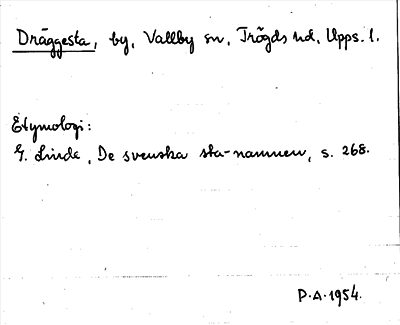 Dräggesta, by, Vallby sn, Trögds hd, Upps. l.
Etymologi:
G. Linde, De svenska sta-namnen, s. 268.
P.A. 1954.